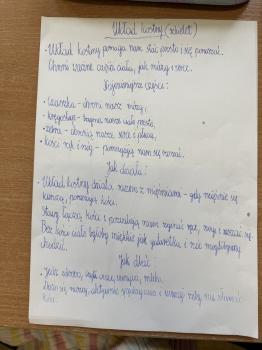 Układ kostny (szkielet)
• Układ kostny pomaga nam stać prosto i się poruszać.
Chroni ważne części ciała, jak mózg i serce.
Najważniejsze części:
• czaszka - chroni nasz mózg,
• kręgosłup - trzyma nasze ciało prosto,
• żebra - chronią nasze serce i płuca,
• kości rąk i nóg - pomagają nam się ruszać.
Jak działa?
• Układ kostny działa razem z mięśniami - gdy mięśnie się
kurczą, poruszają kości.
Stawy łączą kości i pozwalają nam zginać ręce, nogi i ruszać się
Bez kości ciało byłoby miękkie jak galaretka i nie moglibyśmy
chodzić.
Jak dbać?
• Jeść zdrowo, warzywa, mleko.
Dużo się ruszać, aktywnie i uważać żeby nie złamać
kości.